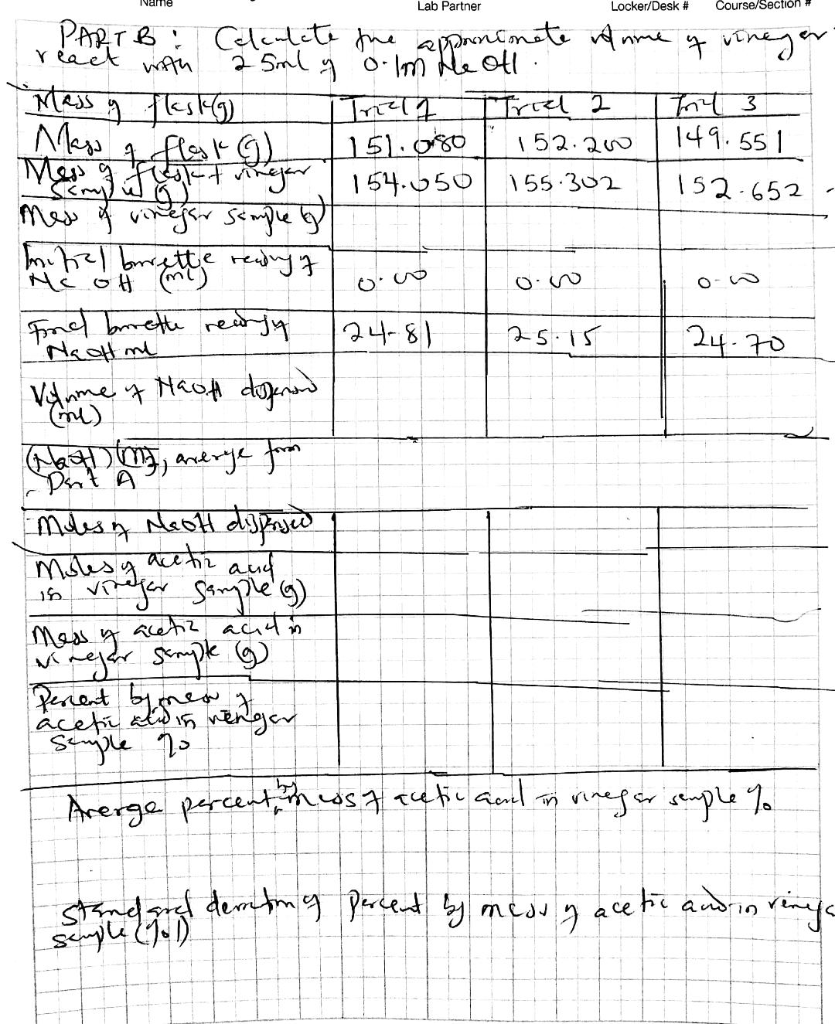 Name Lab Partner Locker/Desk # Course/Section #
PART B: Calculate the approximate volume of vinegar
react with 25ml of 0.1m NaOH.
Mass of flask(g) Trial 1 Trial 2 Trial 3
Mass of flask (g) 151.080 152.200 149.551
Mass of flask + vinegar
sample (g) 154.050 155.302 152.652
Mass of vinegar sample (g)
Initial burette reading of
NaOH (ml) 0.00 0.00 0.00
Final burette reading of 24.81 25.15 24.70
NaOH ml
Volume of NaOH dispensed
(ml)
(NaOH) (M), average from
Part A
Moles of NaOH dispensed
Moles of acetic acid
in vinegar sample (g)
Mass of acetic acid in
vinegar sample (g)
Percent by mass of
acetic acid in vinegar
sample %
Average percent by mass of acetic acid in vinegar sample %
Standard deviation of percent by mass of acetic acid in vinega
sample (%)